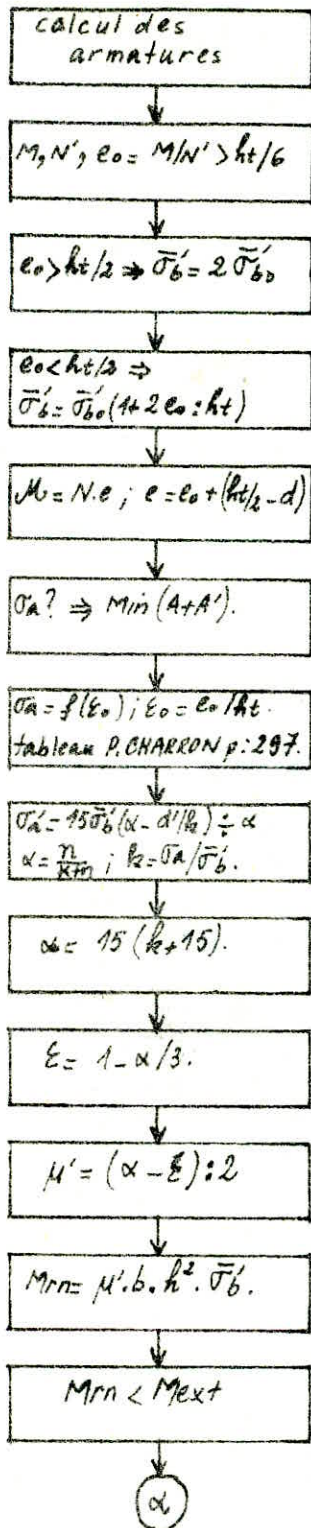 calcul des
armatures
M, N', e₀ = M/N' > ht/6
e₀ > ht/2 ⇒ σ̄'b = 2 σ̄'b₀
e₀ < ht/2 ⇒
σ̄'b = σ̄'b₀ (1 + 2 e₀ : ht)
M = N.e ; e = e₀ + (ht/2 - d)
σa ? ⇒ Min (A + A').
σa = f(ε₀) ; ε₀ = e₀/ht.
tableau P. CHARRON p: 297.
σ'a = 15 σ̄'b (α - d'/h) ÷ α
α = n/(k+n) ; k = σa/σ̄'b.
α = 15 (k + 15).
ε = 1 - α/3.
μ' = (α - ε) : 2
Mrn = μ'. b. h². σ̄'b.
Mrn < Mext
α